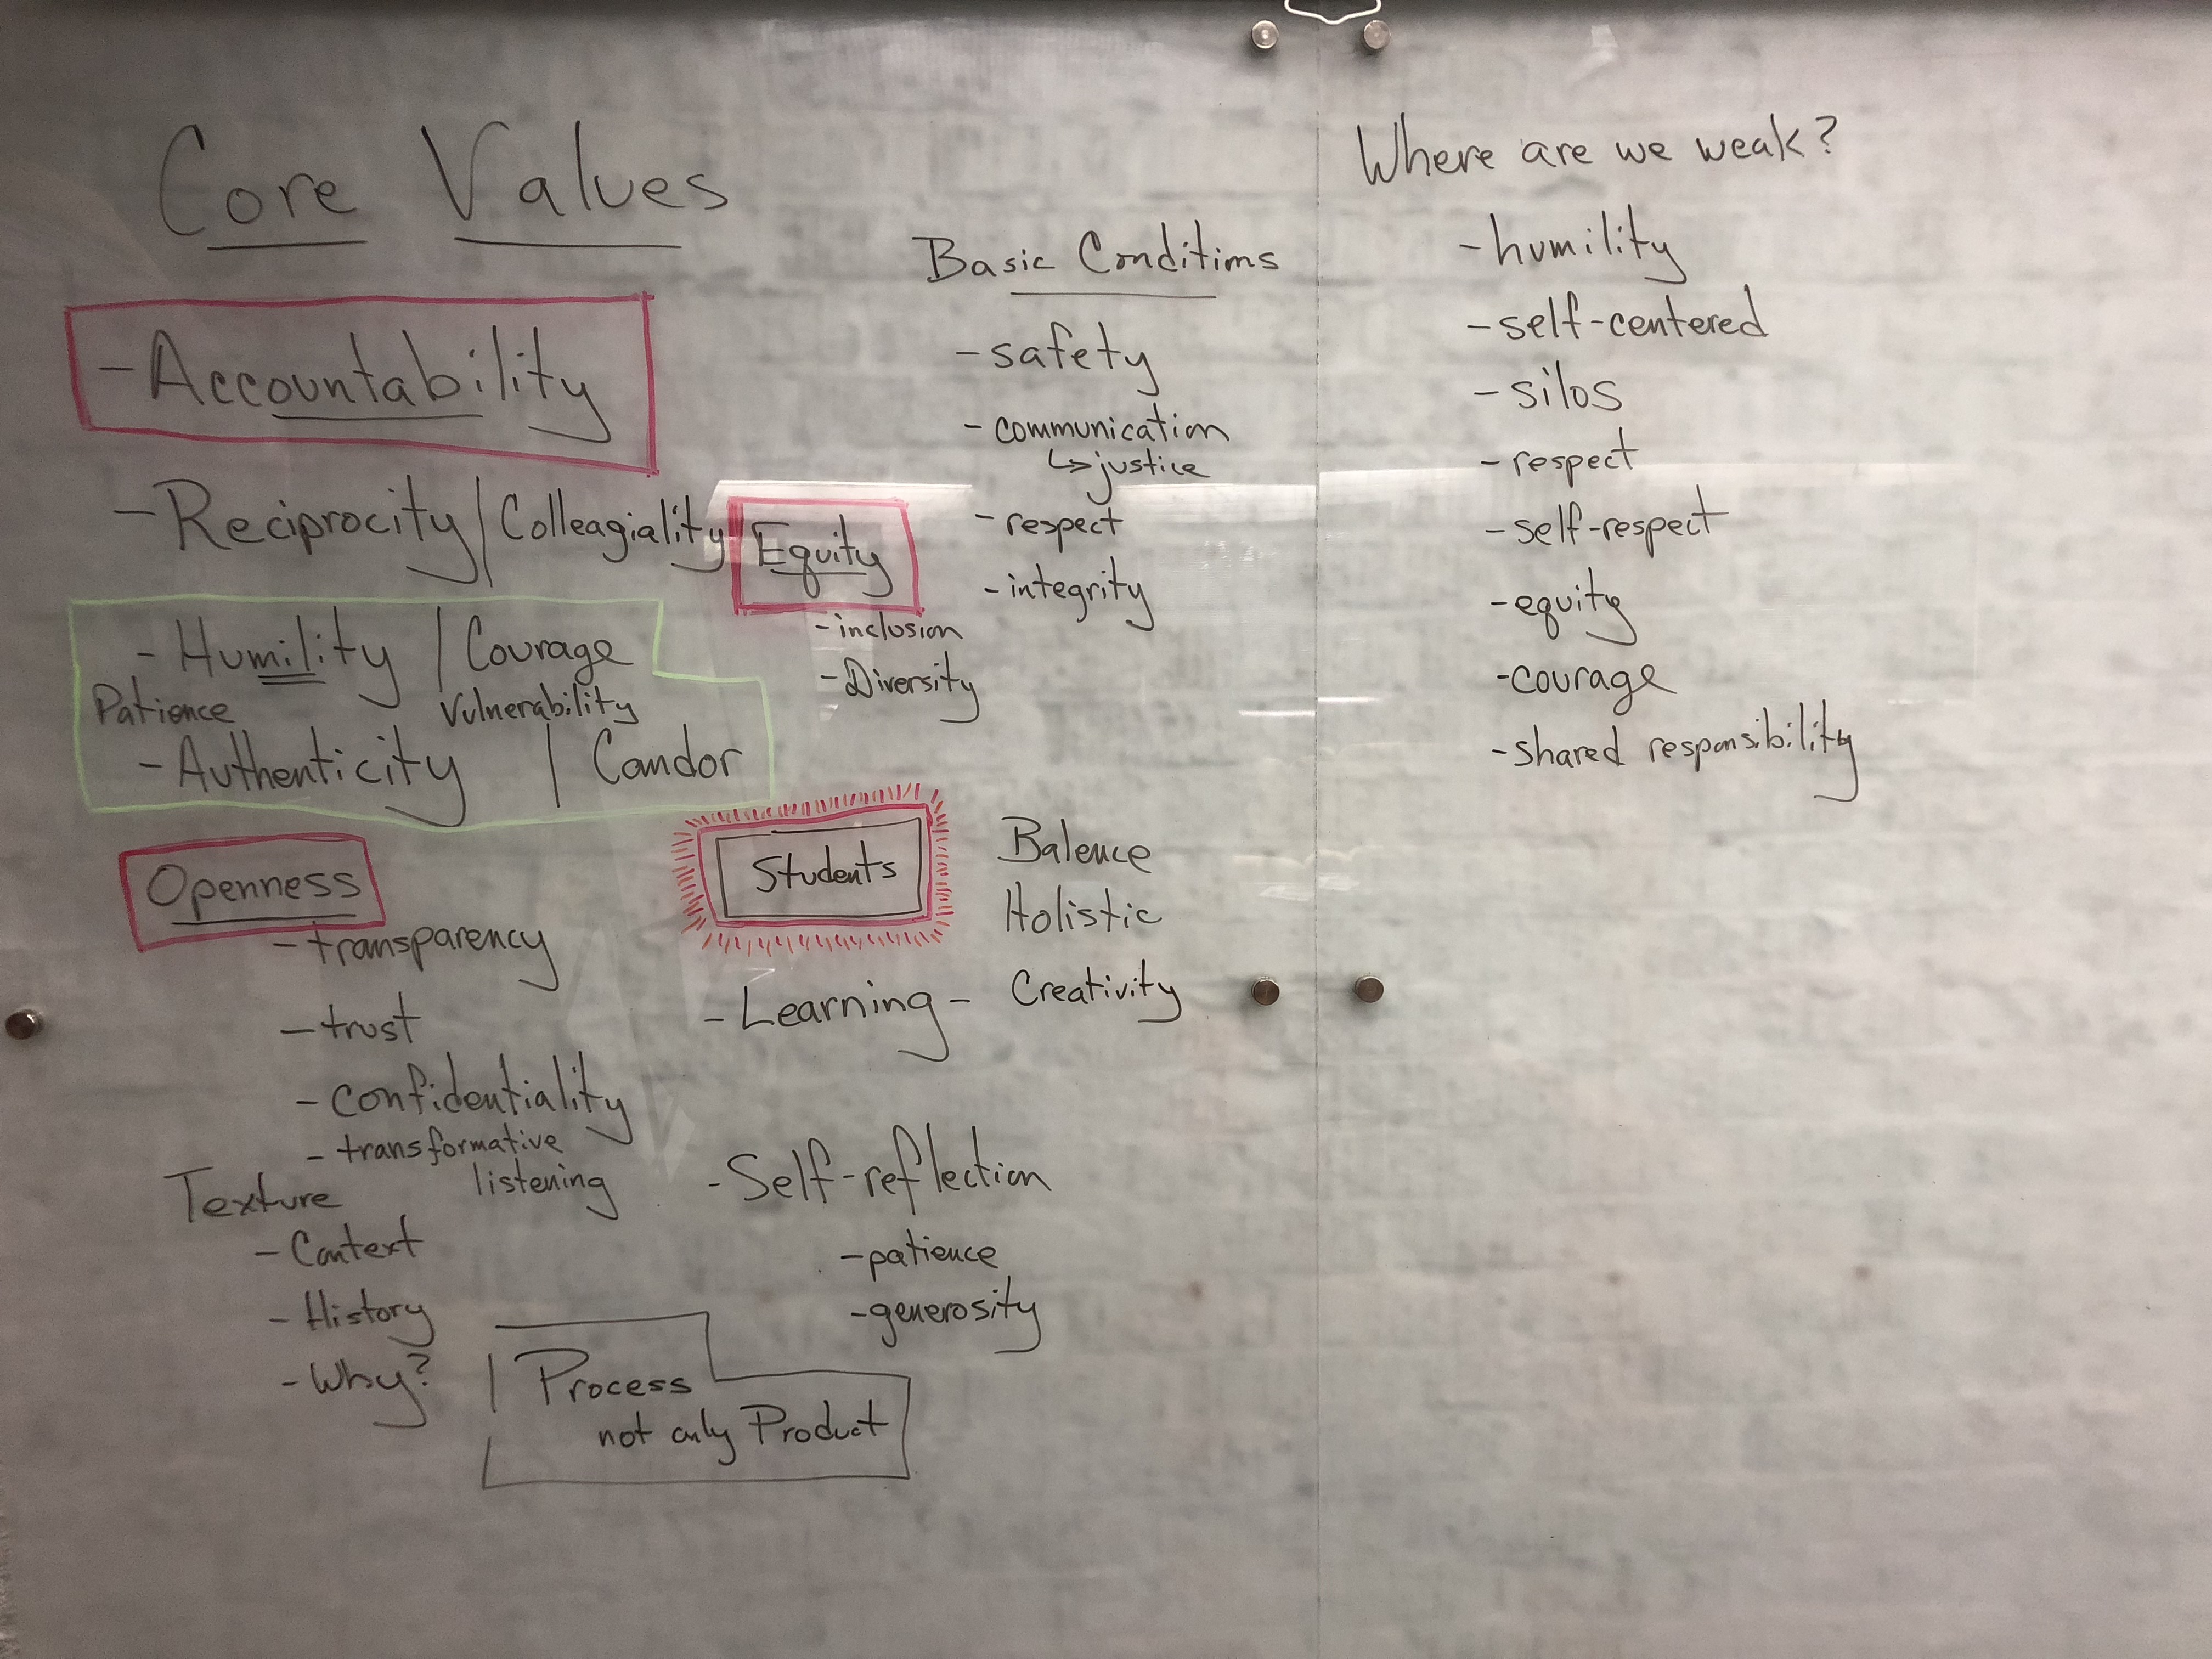 Core Values
- Accountability
- Reciprocity / Colleagiality / Equity
- inclusion
- Diversity
- Humility / Courage
Patience Vulnerability
- Authenticity / Candor
Openness
- transparency
- trust
- Confidentiality
- transformative
listening
Texture
- Context
- History
- Why?
Process
not only Product
Students
- Learning -
Balence
Holistic
Creativity
- Self-reflection
- patience
- generosity
Basic Conditions
- safety
- communication
↳ justice
- respect
- integrity
Where are we weak?
- humility
- self-centered
- silos
- respect
- self-respect
- equity
- courage
- shared responsibility